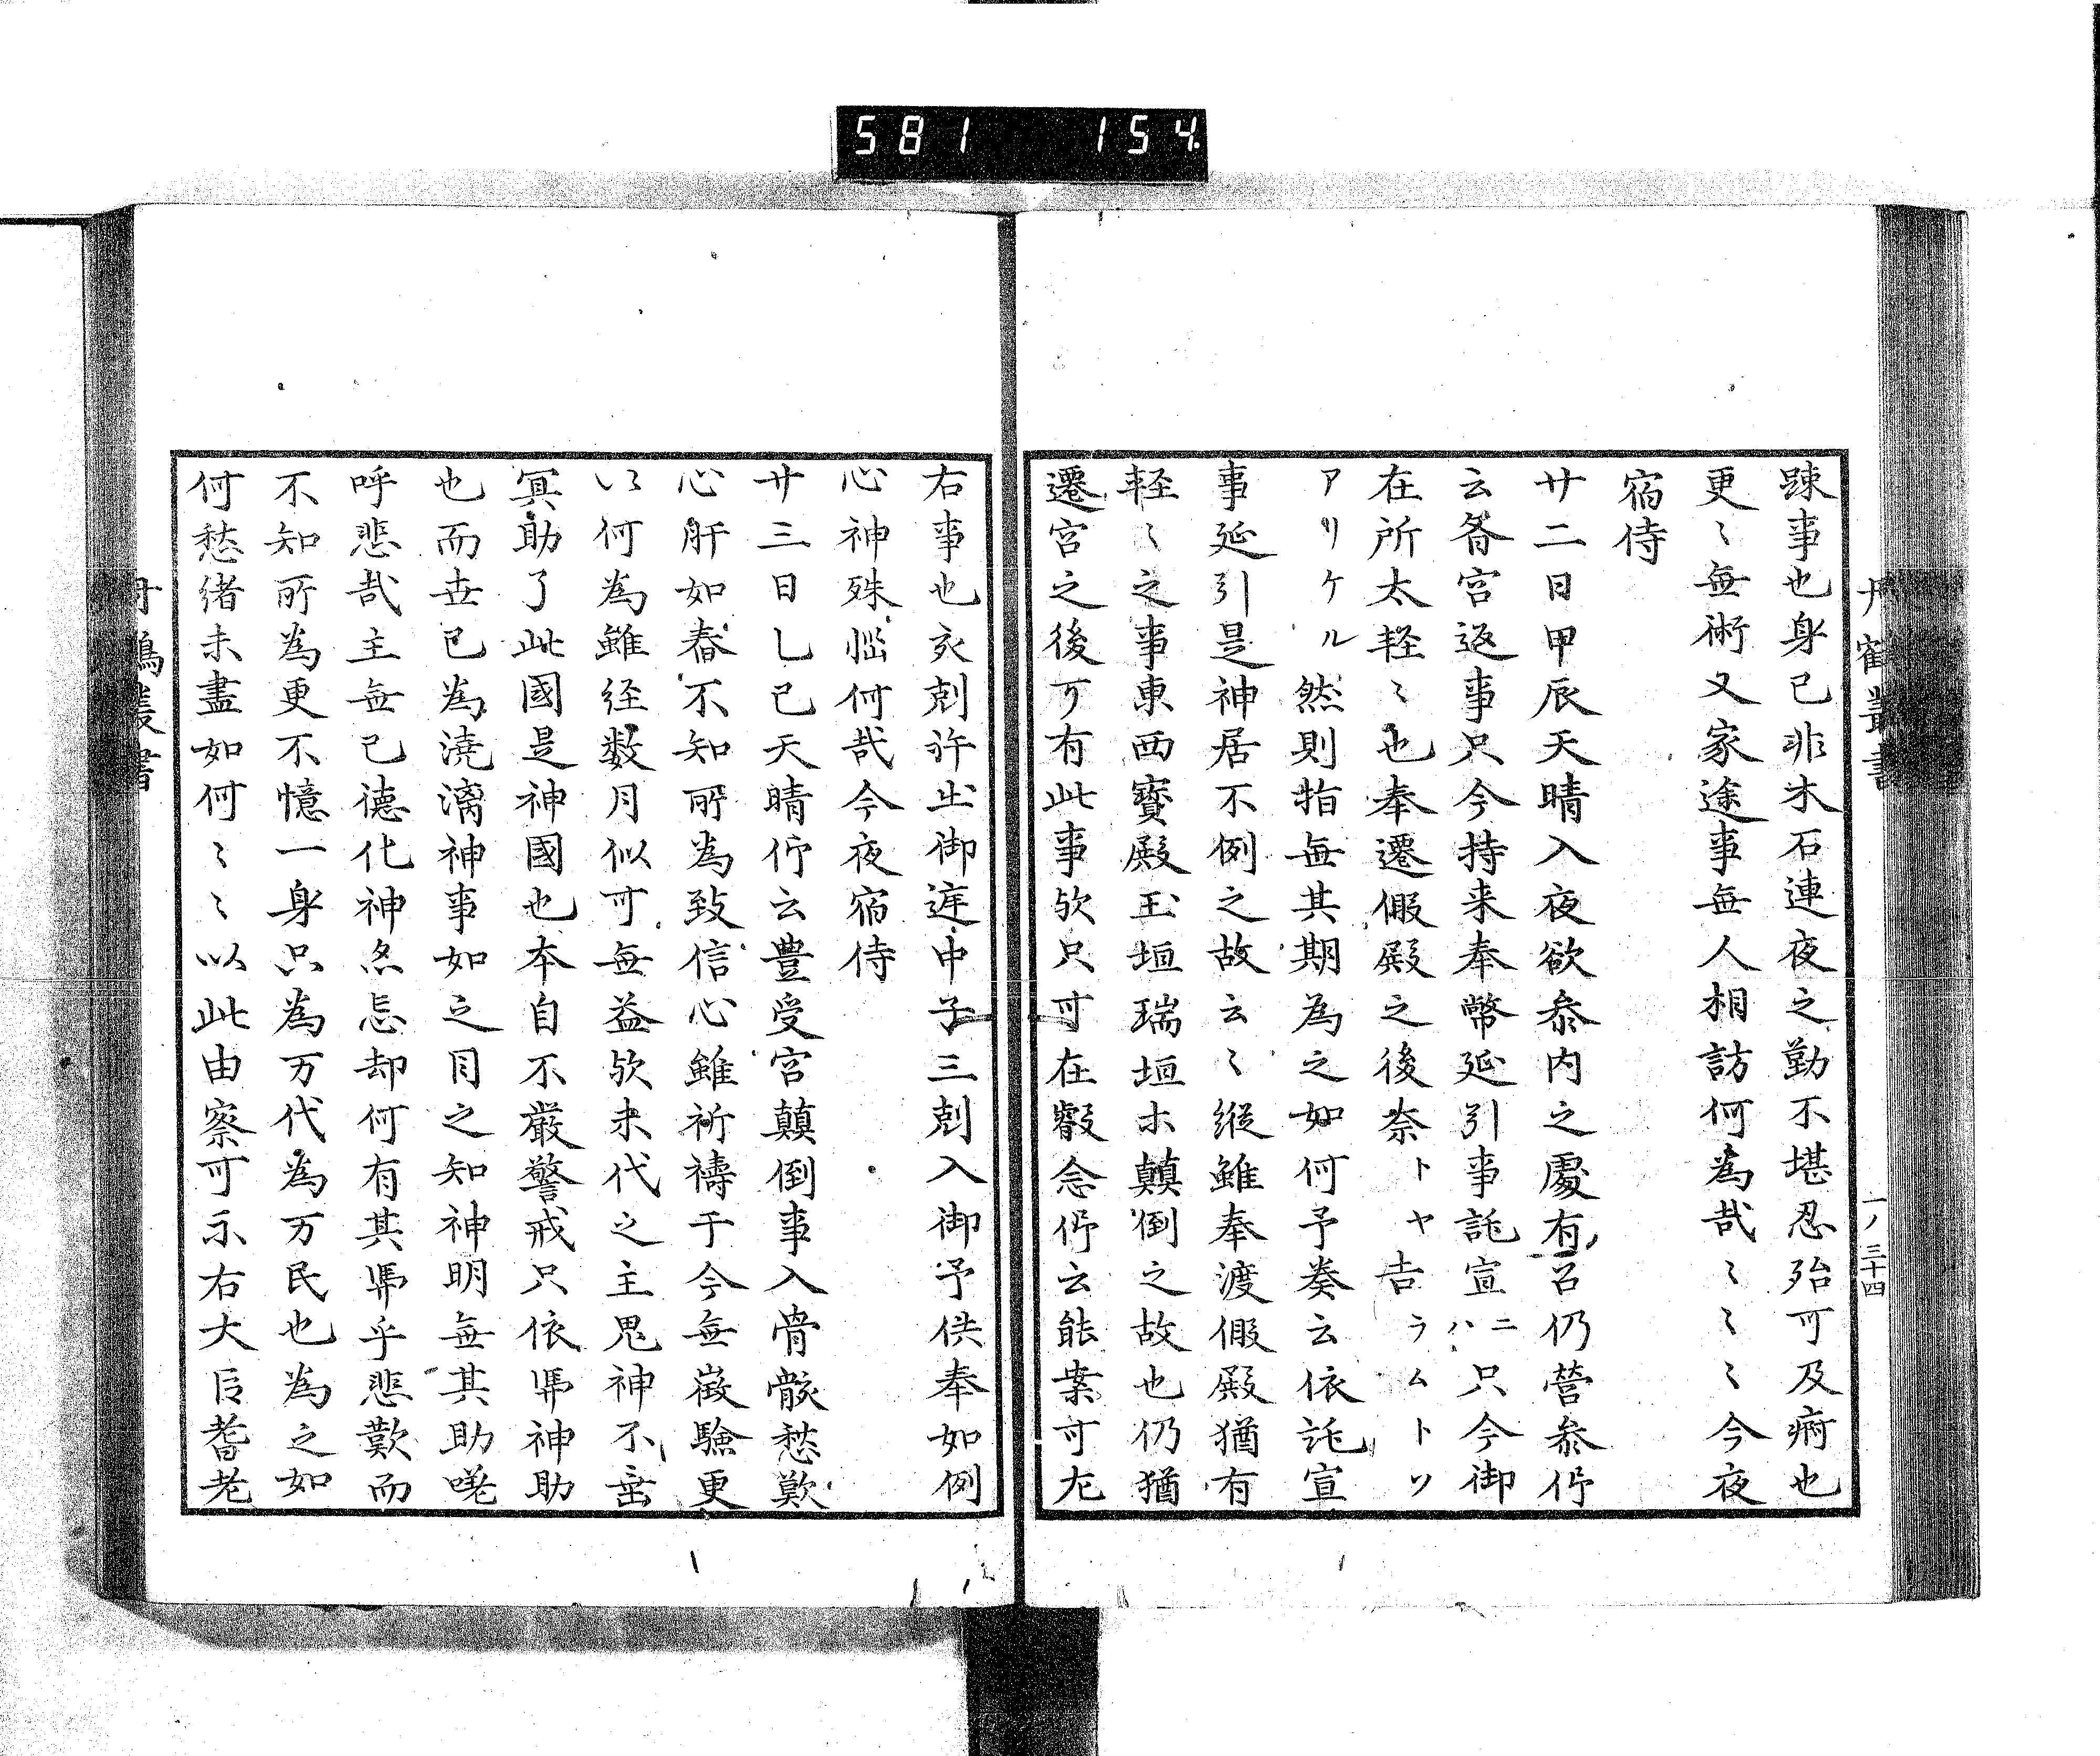 581 154.
丹鶴叢書
一ノ三十四
踈事也身已非木石連夜之勤不堪忍殆可及病也
更〻無術又家途事無人相訪何為哉〻〻〻今夜
宿侍
廿二日甲辰天晴入夜欲参内之處有召仍營参仰
云昏宮返事只今持来奉幣延引事託宣ニハ只今御
在所太軽〻也奉遷假殿之後奈トヤ吉ラムトソ
アリケル然則指無其期為之如何予奏云依託宣
事延引是神居不例之故云〻縦雖奉渡假殿猶有
軽〻之事東西寶殿玉垣瑞垣木顛倒之故也仍猶
遷宮之後可有此事欤只可在叡念仰云能案可左
右事也亥剋許出御筵中子三剋入御予供奉如例
心神殊惱何哉今夜宿侍
廿三日乙已天晴仰云豊受宮顛倒事入骨骸愁歎
心肝如舂不知所為致信心雖祈禱于今無徴驗更
以何為雖経数月似可無益欤末代之主鬼神不垂
冥助了此國是神國也本自不嚴警戒只依神助
也而世已為澆漓神事如之同之知神明無其助嗟
呼悲哉主無已德化神忽忘却何有其乎悲歎而
不知所為更不憶一身只為万代為万民也為之如
何愁緒未盡如何〻〻以此由察可示右大臣耆老
丹鶴叢書